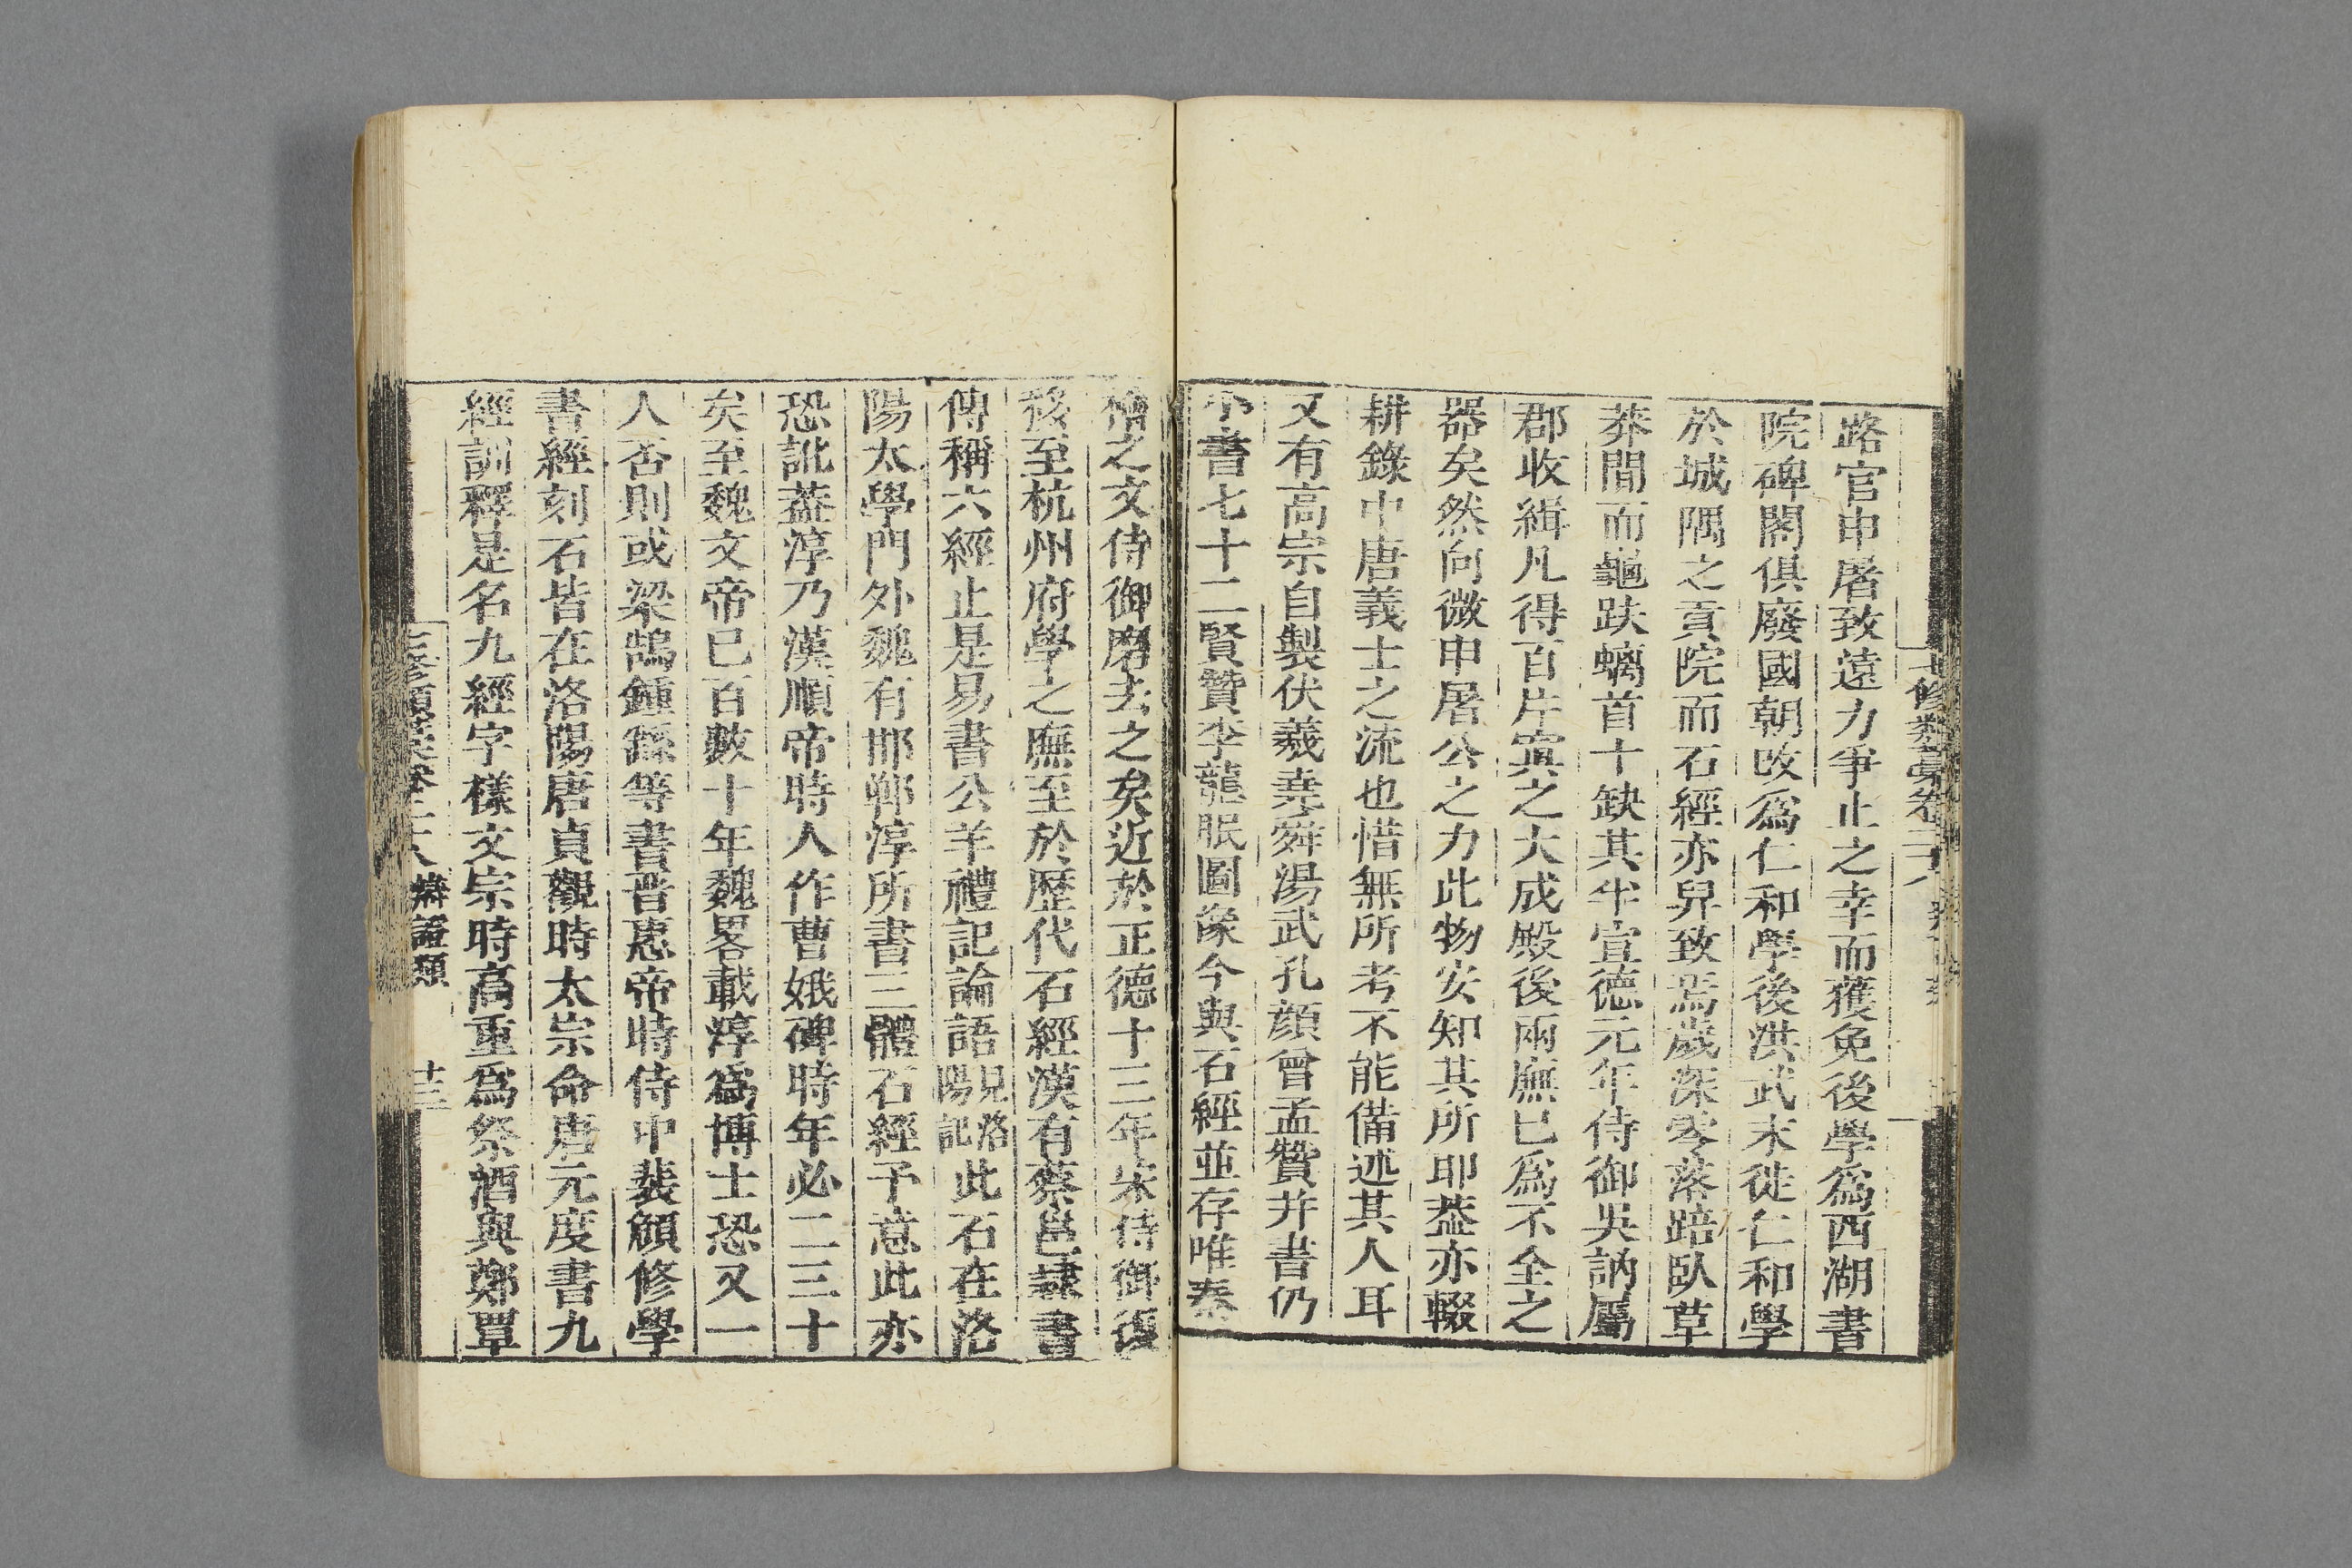 七修類藁卷二十八
路官申屠致遠力爭止之幸而獲免後學為西湖書
院碑閣俱廢國朝改為仁和學後洪武末徙仁和學
於城隅之貢院而石經亦舁致焉歲深零落踣臥草
莽間而龜趺螭首十缺其半宣德元年侍御吳訥屬
郡收緝凡得百片寘之大成殿後兩廡已為不全之
器矣然向微申屠公之力此物安知其所耶葢亦輟
耕錄中唐義士之流也惜無所考不能備述其人耳
又有高宗自製伏羲堯舜湯武孔顔曾孟贊并書仍
小書七十二賢贊李龍眠圖象今與石經並存唯秦
檜之文侍御磨去之矣近於正德十三年宋侍御復
移至杭州府學之廡至於歷代石經漢有蔡邕隷書
傳稱六經止是易書公羊禮記論語見洛陽記此石在洛
陽太學門外魏有邯鄲淳所書三體石經予意此亦
恐訛葢淳乃漢順帝時人作曹娥碑時年必二三十
矣至魏文帝已百數十年魏畧載淳為博士恐又一
人否則或梁鵠鍾繇等書晋惠帝時侍中裴頠修學
書經刻石皆在洛陽唐貞觀時太宗命唐元度書九
經訓釋是名九經字樣文宗時高重為祭酒與鄭覃
七修類藁卷二十八 辯證類 十三